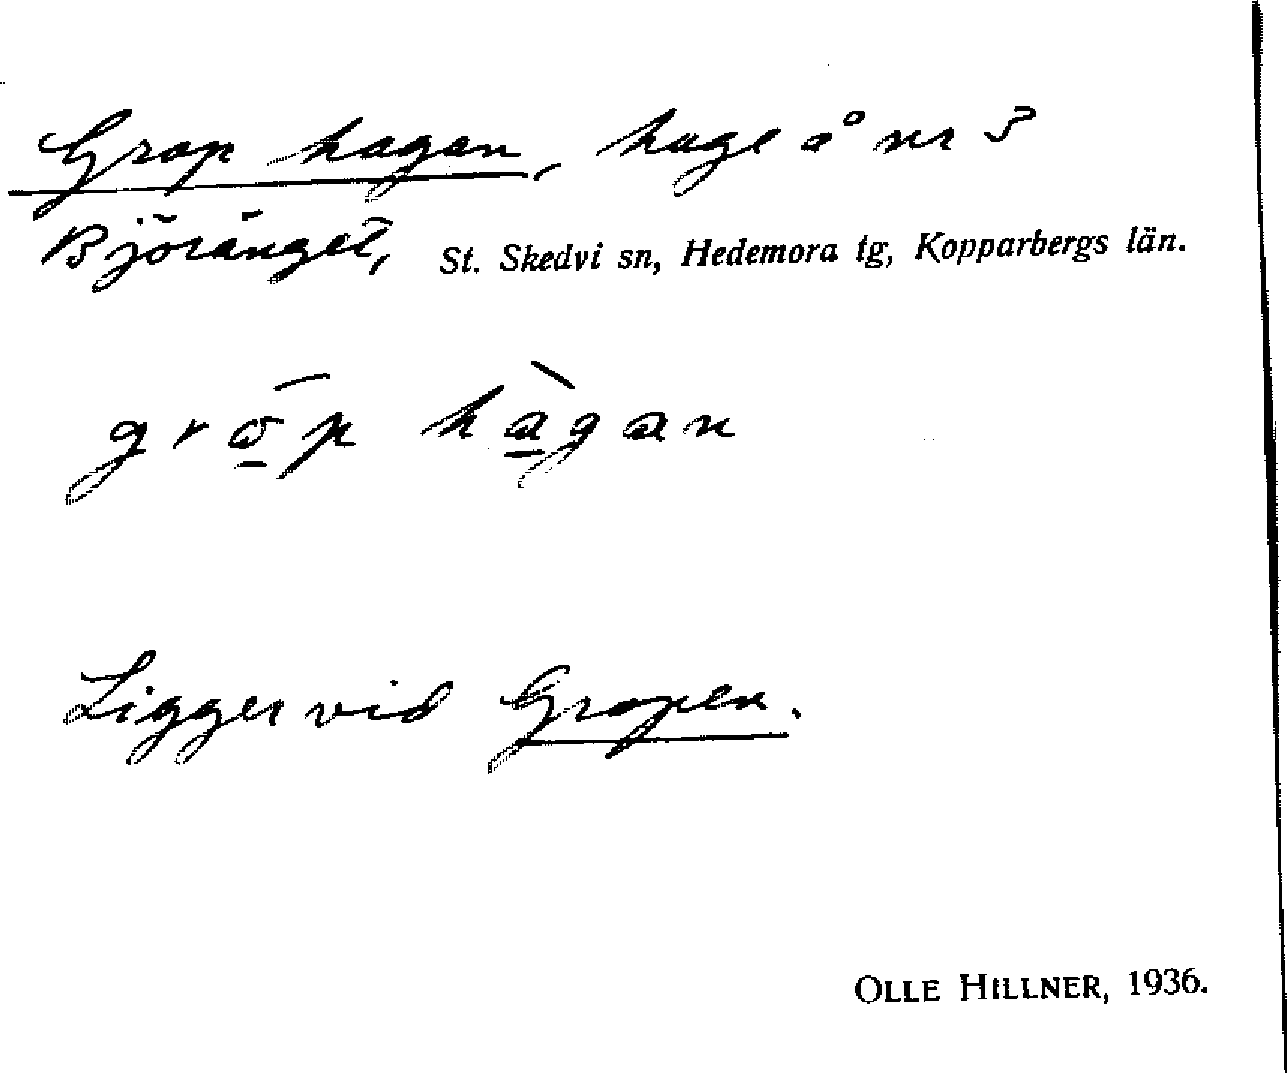 Grop hagen, hage å nr 3
Björänget, St. Skedvi sn, Hedemora tg, Kopparbergs län.
Ligger vid Gropen.
OLLE HILLNER, 1936.